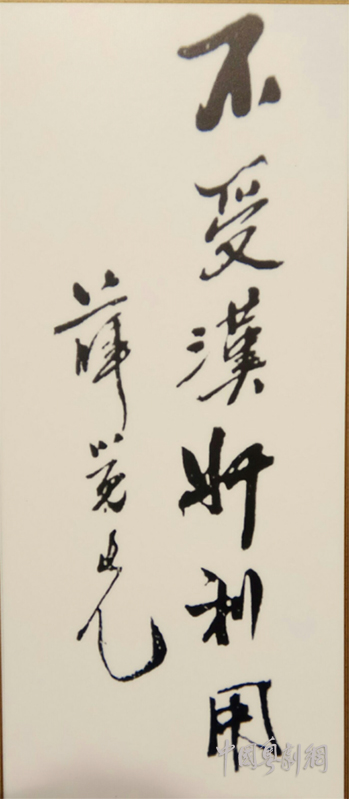 不受漢奸利用
薛覺先
中國粵劇網